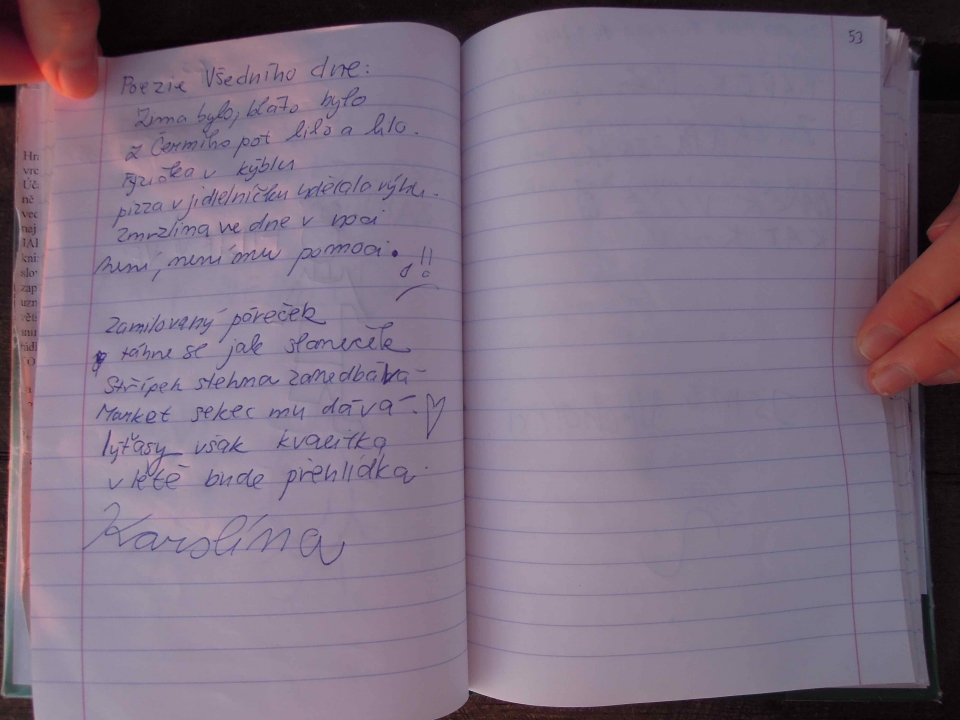 53
Poezie Všedního dne:
Zima bylo, bláto bylo
z Černího pot lilo a lilo.
Ryzička v kýblu
pizza v jídelníčku udělala rýhu.
Zmrzlina ve dne v noci
není, není mu pomoci. !!
Zamilovaný páreček
táhne se jak slaneček
Střípek stehna zanedbává
Market sekec mu dává. ♡
lýťasy však kvalitka
v létě bude přehlídka.
Karolína
Hra
vro
Úča
ně
ved
naj
kni
slov
zap
uzn